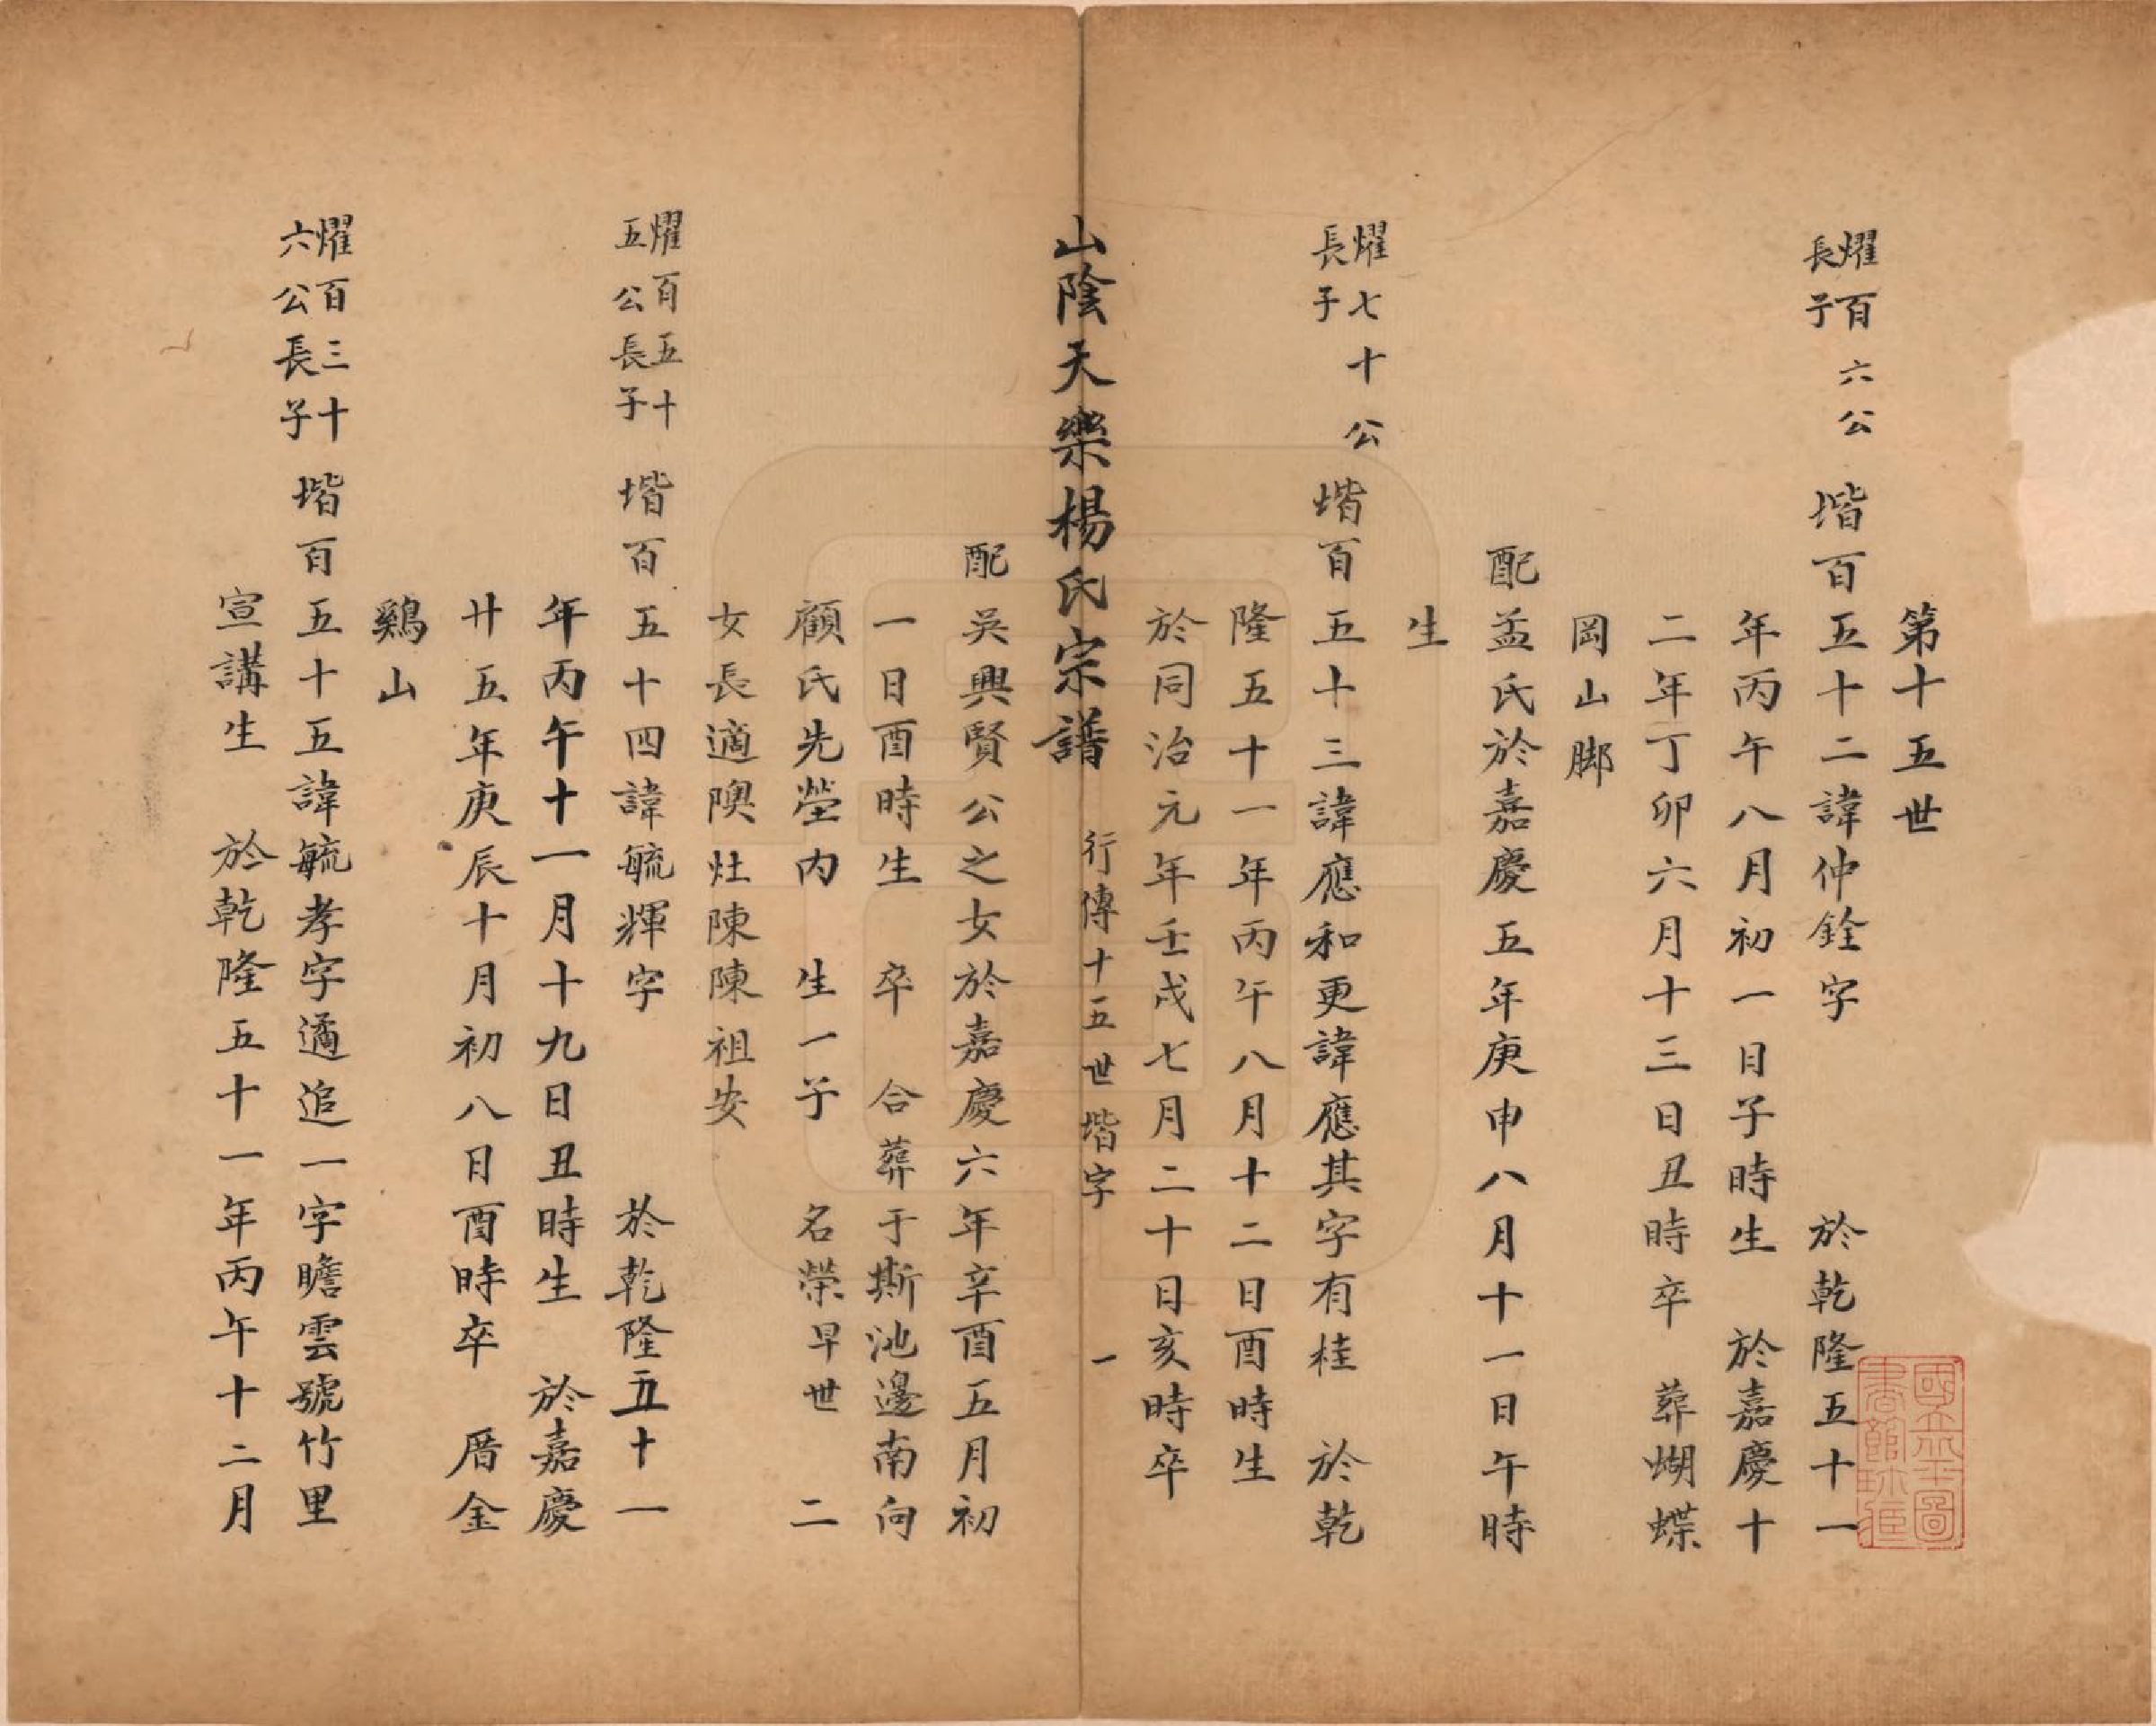 第十五世
耀百六公
長子
堦百五十二諱仲銓字 於乾隆五十一
年丙午八月初一日子時生 於嘉慶十
二年丁卯六月十三日丑時卒 葬蝴蝶
岡山脚
配孟氏於嘉慶五年庚申八月十一日午時
生
耀七十公
長子
堦百五十三諱應和更諱應其字有桂 於乾
隆五十一年丙午八月十二日酉時生
於同治元年壬戌七月二十日亥時卒
山陰天樂楊氏宗譜 行傳十五世堦字 一
配吳興賢公之女於嘉慶六年辛酉五月初
一日酉時生 卒 合葬于斯池邊南向
顧氏先塋內 生一子 名榮早世 二
女長適隩灶陳陳祖安
耀百五十
五公長子
堦百五十四諱毓輝字 於乾隆五十一
年丙午十一月十九日丑時生 於嘉慶
廿五年庚辰十月初八日酉時卒 厝金
鷄山
耀百三十
六公長子
堦百五十五諱毓孝字遹追一字瞻雲號竹里
宣講生 於乾隆五十一年丙午十二月
國立北平圖
書館珍藏